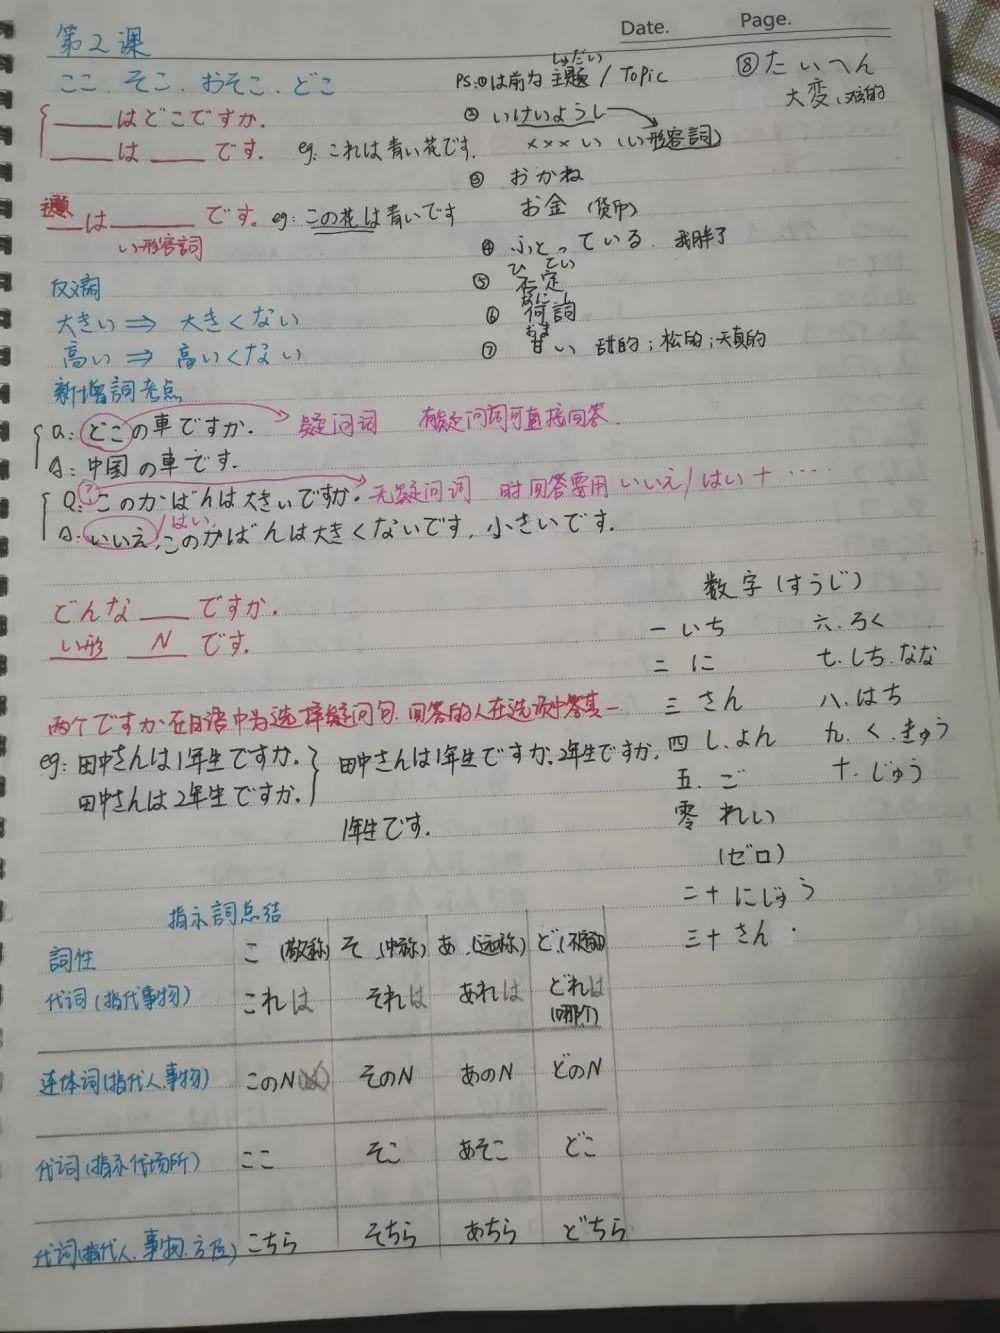 Date. Page.
第2课
ここ、そこ、おそこ、どこ
___はどこですか.
___は___です. eg: これは青い花です.
主題
___は______です。eg: この花は青いです
い形容詞
反义詞
大きい ⇒ 大きくない
高い ⇒ 高いくない
新增詞考点
Q: どこの車ですか. 疑问词 有疑问词可直接回答.
A: 中国の車です.
Q: このかばんは大きいですか. 无疑问词 时回答要用 いいえ/はい + ....
はい.
A: いいえ,このかばんは大きくないです, 小さいです.
どんな___ですか.
い形 N です.
两个ですか在日语中为选择疑问句. 回答的人在选项中答其一
eg: 田中さんは1年生ですか.
田中さんは2年生ですか.
田中さんは1年生ですか. 2年生ですか.
1年生です.
しゅだい
PS:①は前为 主题 / Topic
② いけいようし
×××い (い形容詞)
③ おかね
お金 (货币)
④ ふとっている. 我胖了
ひ てい
⑤ 否定
なにし
⑥ 何詞
あま
⑦ 甘い 甜的; 松的; 天真的
⑧ たいへん
大変
数字 (すうじ)
一 いち 六. ろく
二 に 七. しち. なな
三 さん 八. はち
四 し. よん 九. く. きゅう
五. ご 十. じゅう
零 れい
(ゼロ)
二十 にじゅう
三十 さん
指示詞总结
詞性 こ (近称) そ (中称) あ (远称) ど
代词 (指代事物) これは それは あれは どれは
(哪个)
连体词 (指代人.事物) このN そのN あのN どのN
代词 (指示代场所) ここ そこ あそこ どこ
代词 (指代人. 事物. 方位) こちら そちら あちら どちら